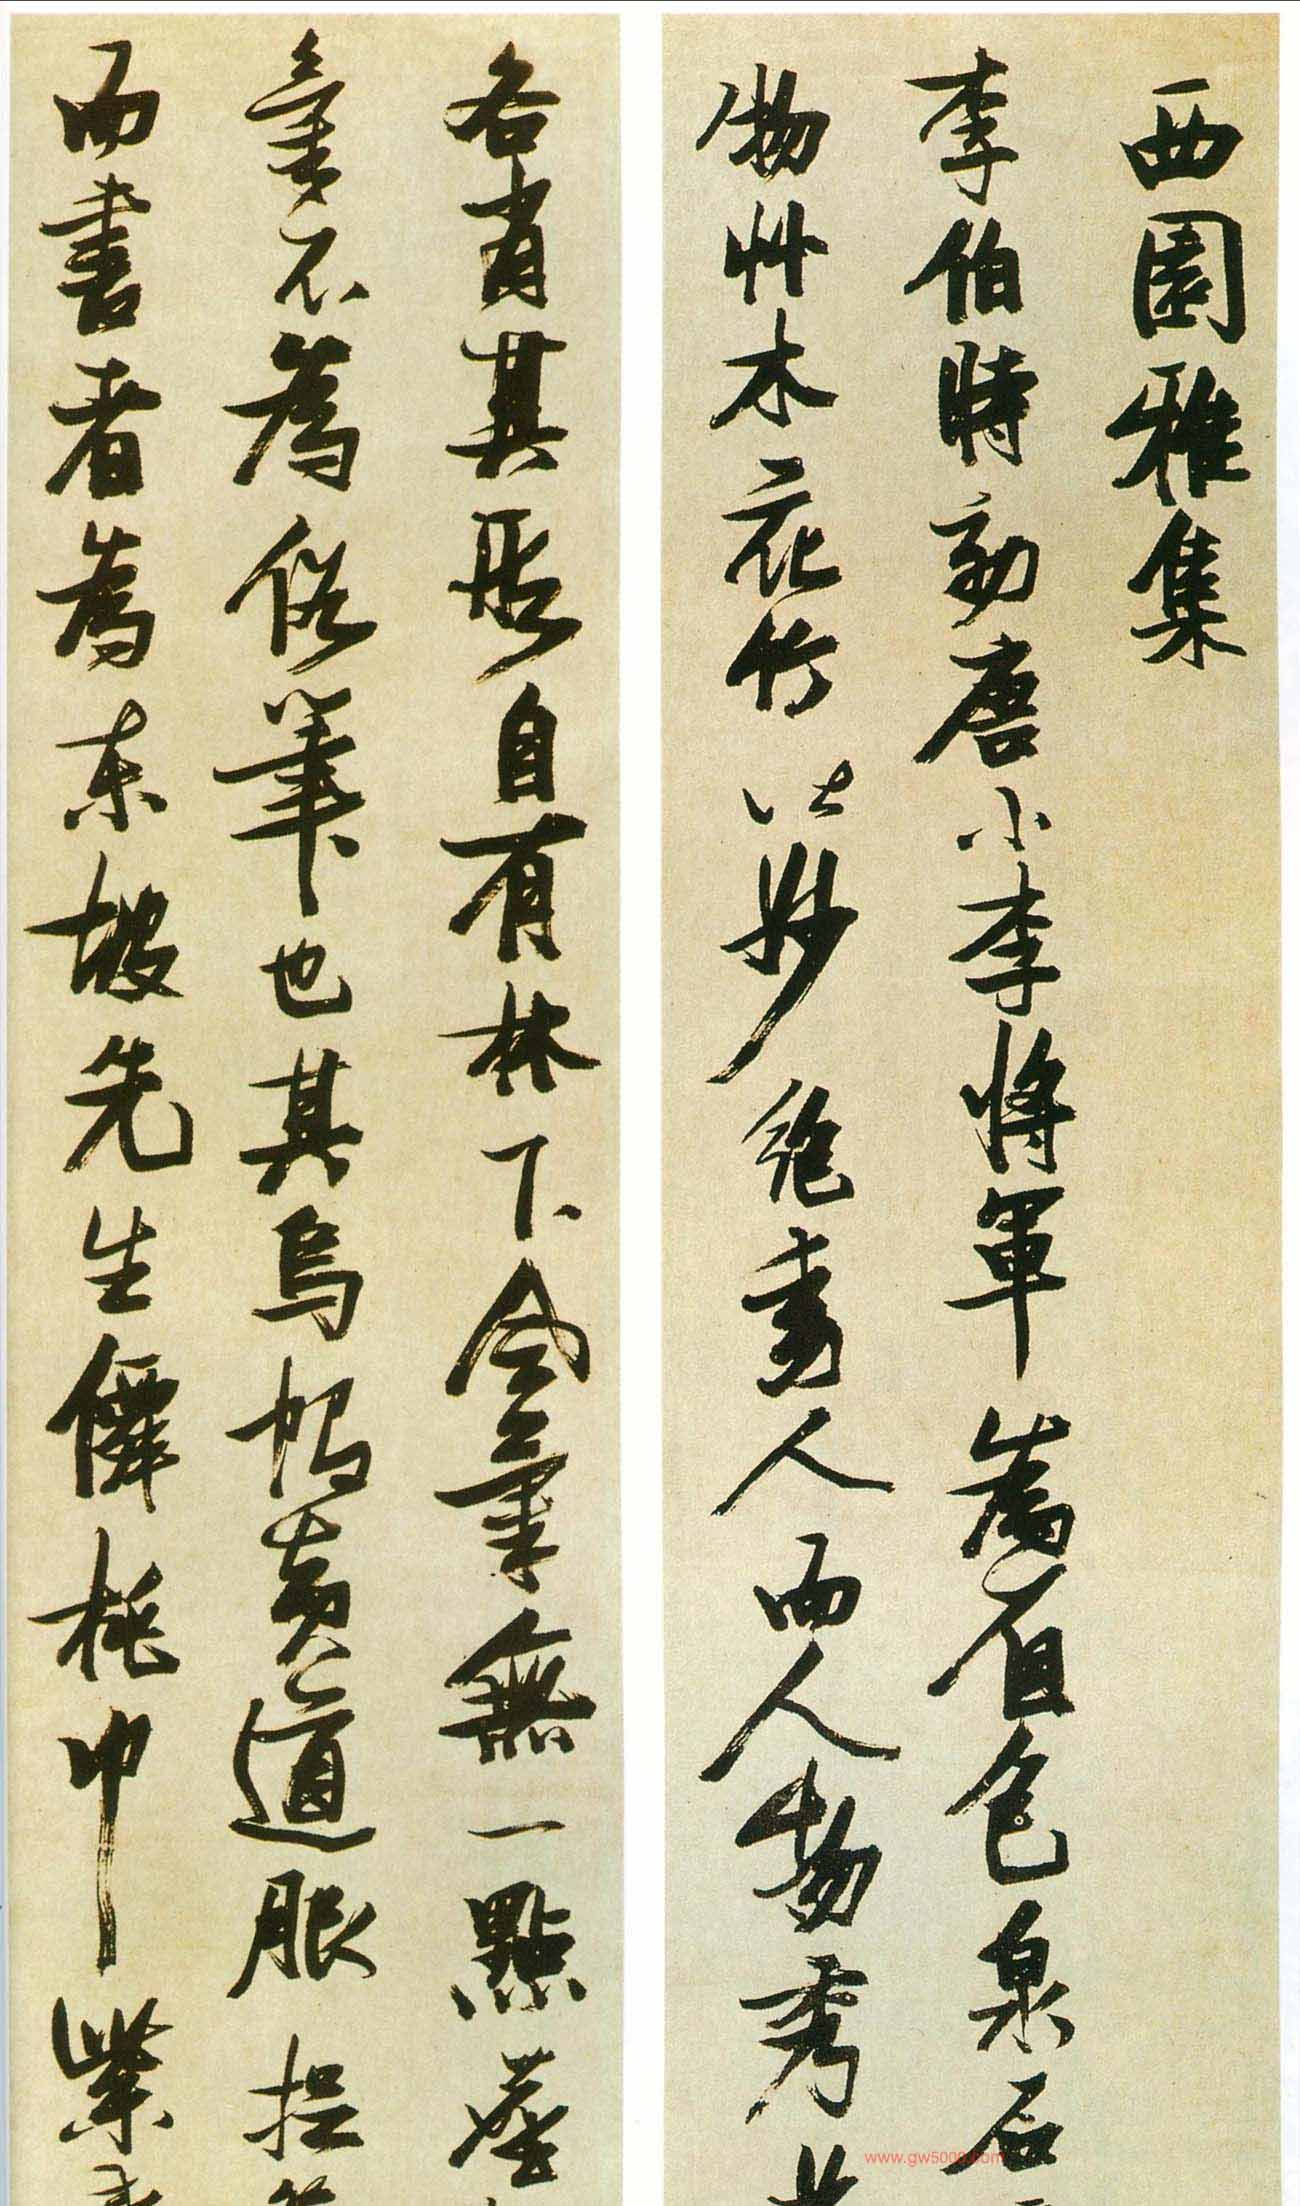 西園雅集
李伯時效唐小李將軍為着色泉石
物艸木花竹皆妙絕動人而人物秀
各肖其形自有林下風氣無一點塵
氣不為俗筆也其烏帽黃道服捉
而書者為東坡先生僊桃巾紫
www.gw5000.com